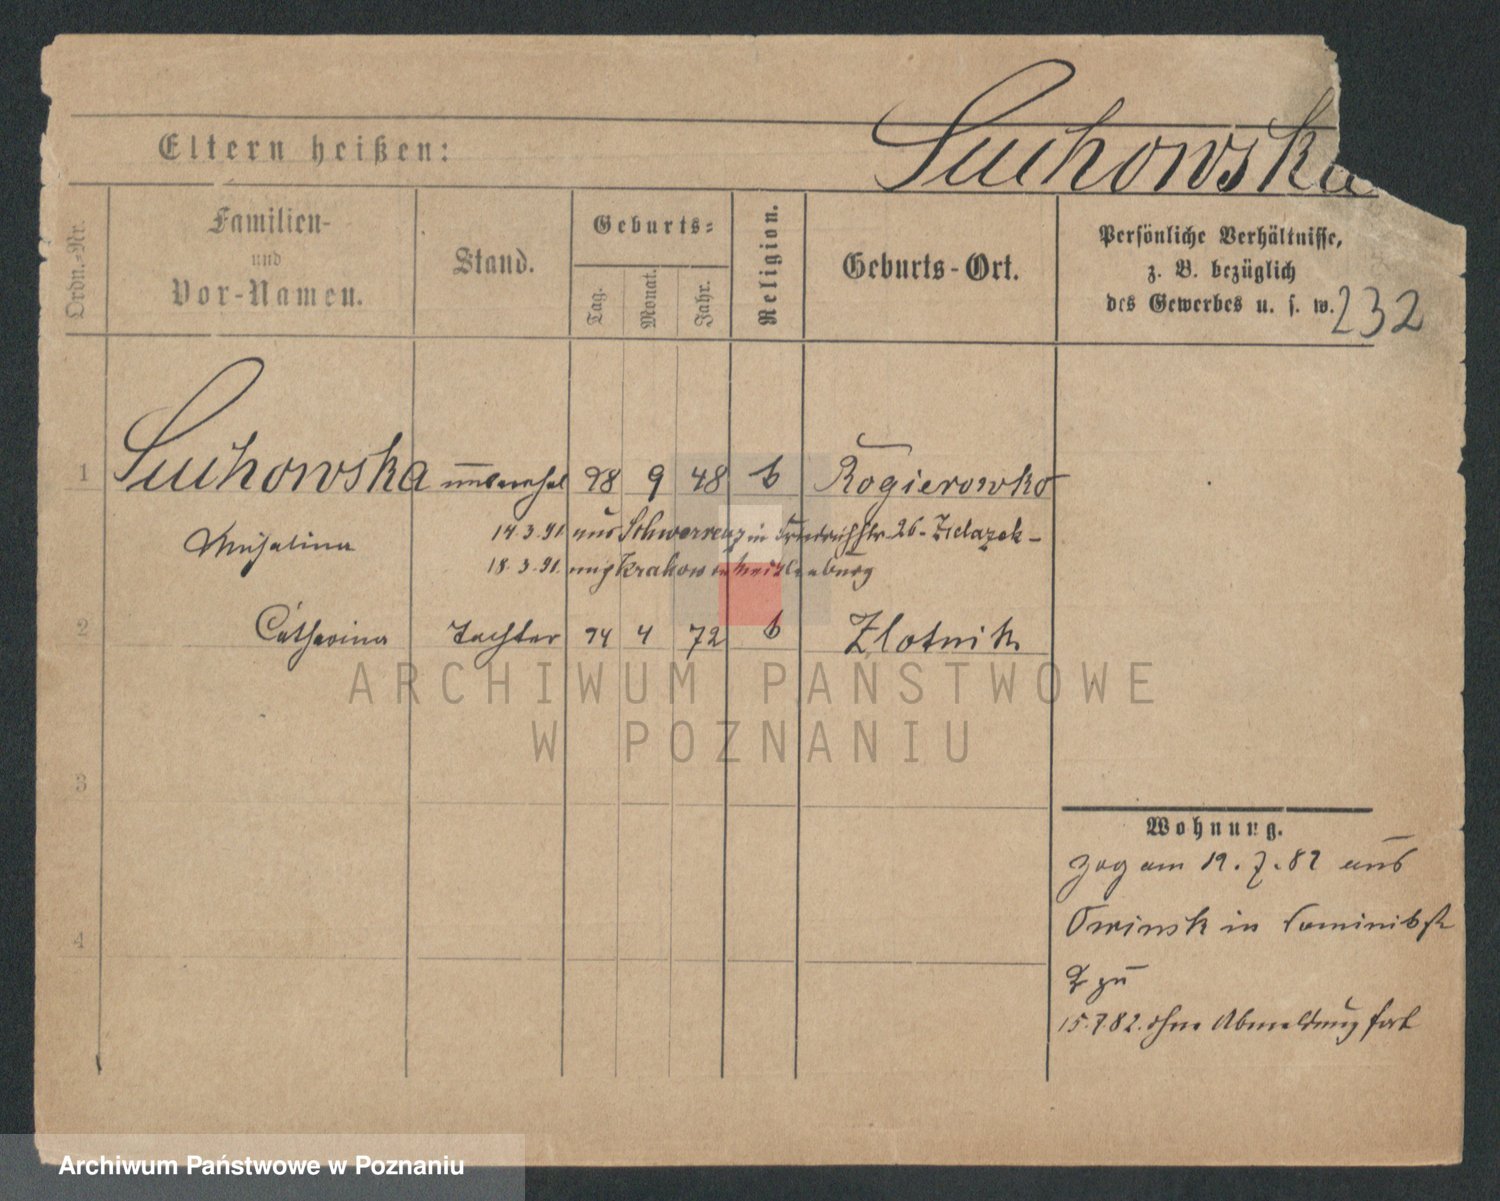 Suchowska
Eltern heißen:
Ordn.-Nr.
Familien-
und
Vor-Namen.
Stand.
Geburts-
Tag.
Monat.
Jahr.
Religion.
Geburts-Ort.
Persönliche Verhältnisse,
z. B. bezüglich
des Gewerbes u. s. w.
232
1 Suchowska unverehel 28 9 48 k Rogierowko
Michalina
14.3.91 aus Schwersenz in Friedrichstr 26
18.3.91. nach Krakow in Mecklenburg
2 Catharina Tochter 24 4 72 k Zlotnik
ARCHIWUM PAŃSTWOWE
W POZNANIU
3
Wohnung.
zog am 12.7.82 aus
Owinsk in
4
zu
15.7.82. ohne Abmeldung fort
Archiwum Państwowe w Poznaniu